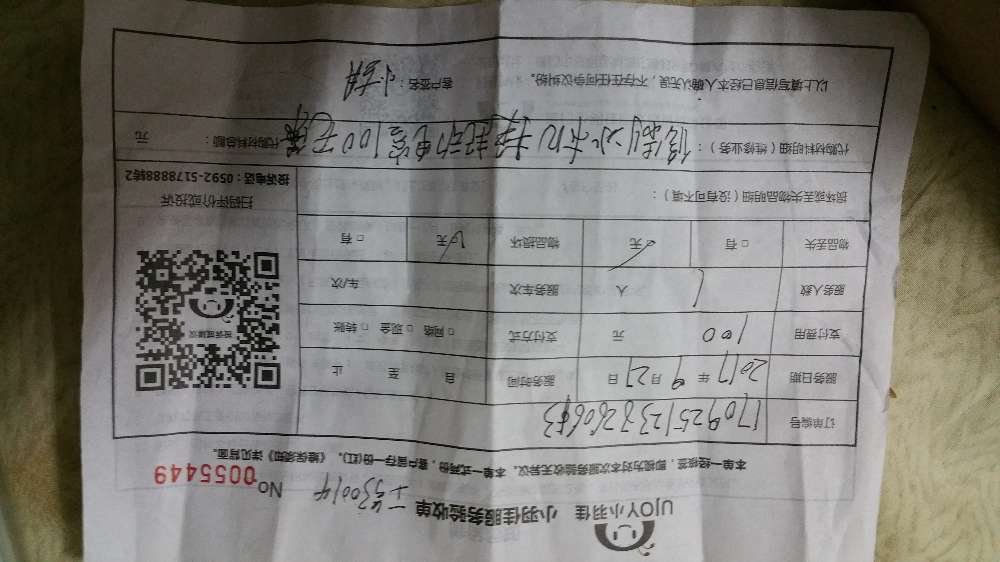 UJOY小羽佳 小羽佳服务验收单
No 0055449
本单一经核签，即视为对本次服务验收无异议。本单一式两份，客户留存一份(红)。《验保须知》详见背面。
订单编号
服务日期 2017 年 9 月 27 日 服务时间 自 至 止
支付费用 100 元 支付方式 □ 网络 □ 现金 □ 转账
服务人数 1 人 服务车次 车/次
物品丢失 □ 有 无 物品损坏 无 □ 有
损坏或丢失物品明细（没有可不填）：
扫码评价或投诉
投诉电话：0592-5178888转2
代购材料明细（维修业务）： 冰机 换起动电容100元 代购材料总额： 元
以上填写信息已经本人确认无误，不存在任何争议纠纷。 客户签名：